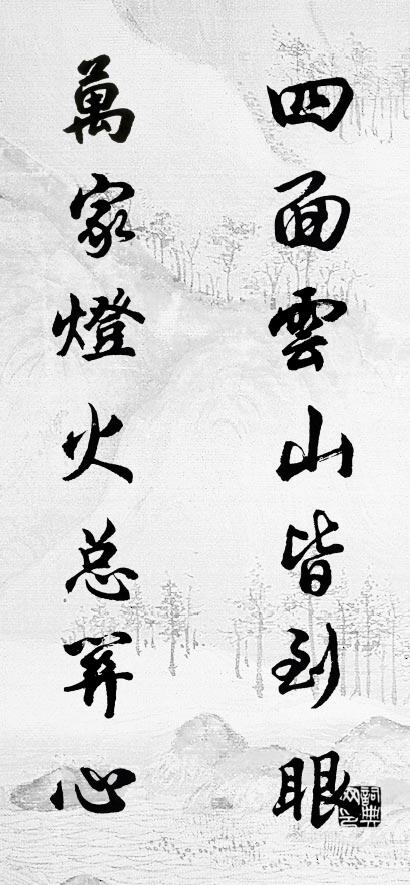 四面雲山皆到眼
萬家燈火总關心